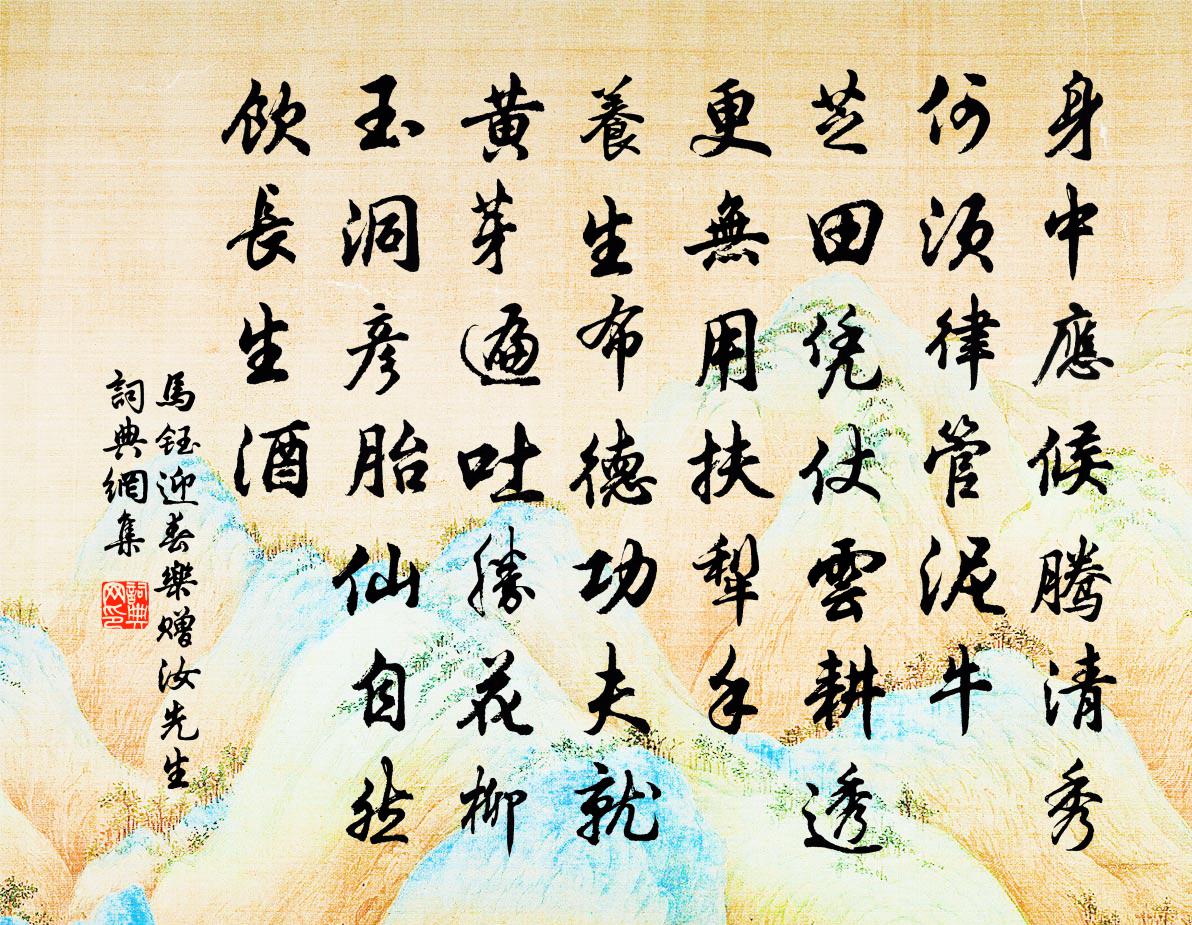 身中應候騰清秀
何須律管泥牛
芝田凭仗雲耕透
更無用扶犁手
養生布德功夫就
黃芽遍吐勝花柳
玉洞彥胎仙自然
飲長生酒
馬鈺迎春樂贈汝先生
詞典網集
詞典網印